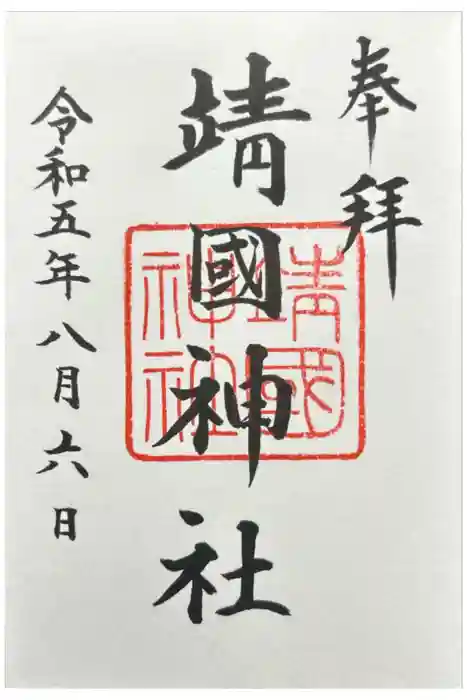 奉拝
靖國神社
靖國神社
令和五年八月六日